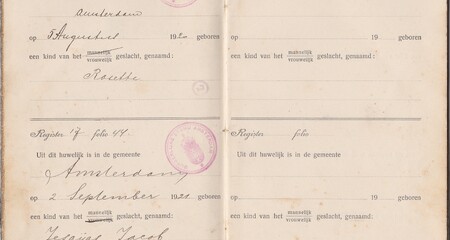 Amsterdam
op 5 Augustus 1920 geboren
een kind van het mannelijk vrouwelijk geslacht, genaamd:
Rosette
Register 17 folio 44.
Uit dit huwelijk is in de gemeente
Amsterdam
op 2 September 1920 geboren
een kind van het mannelijk vrouwelijk geslacht, genaamd:
Jacob
op 19 geboren
een kind van het mannelijk vrouwelijk geslacht, genaamd:
Register folio
Uit dit huwelijk is in de gemeente
op 19 geboren
een kind van het mannelijk vrouwelijk geslacht, genaamd: